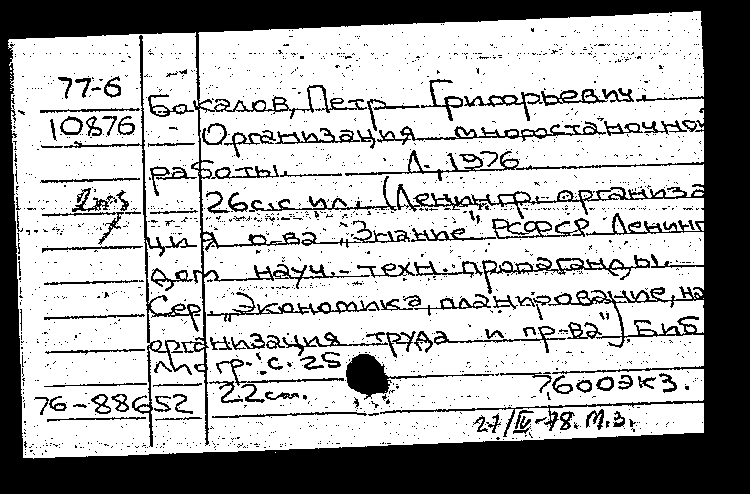 77-6
10876
Бакалов, Петр Григорьевич.
- Организация многостаночной
работы. Л., 1976
26с. с ил. (Ленингр. организа
ция о-ва „Знание" РСФСР. Ленинг
дом науч.-техн. пропаганды.
Сер. „Экономика, планирование, на
организация труда и пр-ва") Биб
лиогр.: с. 25
76-88652 22см. 7600экз.
27/IV-78. М.З.